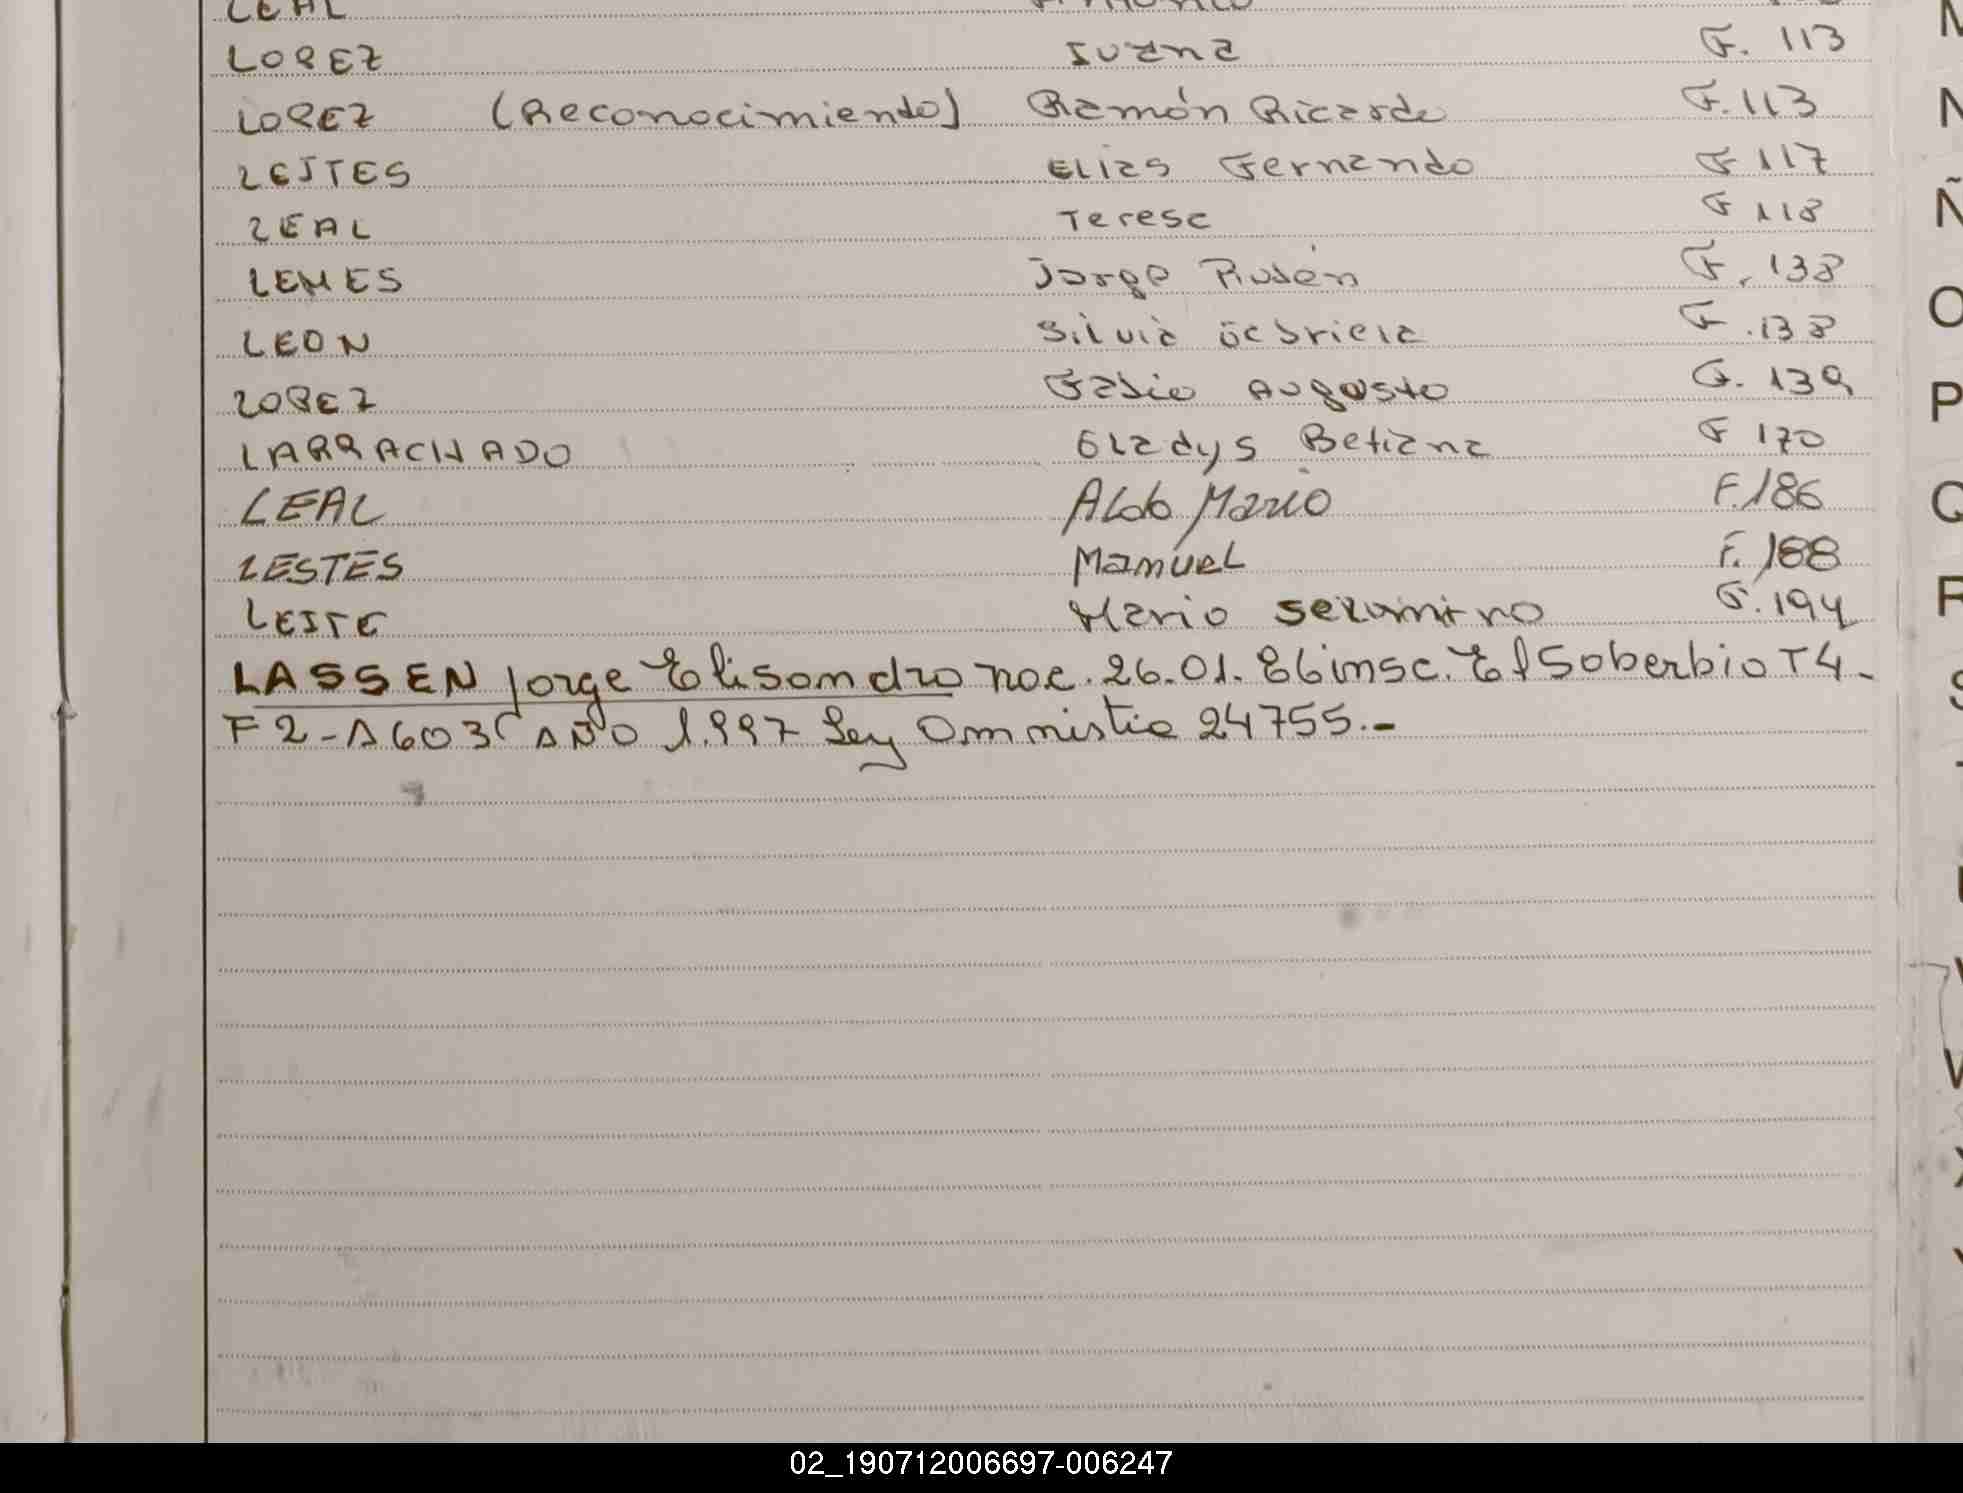 LEAL
LOPEZ Juana F. 113
LOPEZ (Reconocimiento) Ramón Ricardo F. 113
LEITES Elias Fernando F 117
LEAL Teresa F 118
LEMES Jorge Rubén F. 138
LEON Silvia Gabriela F. 138
LOPEZ Fabio Augusto F. 139
LARRACHADO Gladys Betiana F 170
LEAL Aldo Mario F. 186
LESTES Manuel F. 188
LEITE Mario F. 194
LASSEN Jorge Elisandro nac. 26.01.86 insc. El Soberbio T4-
F2-A603 AÑO 1.997 Ley Amnistia 24755.-
M
N
Ñ
O
P
Q
R
S
T
U
V
W
X
Y
02_190712006697-006247